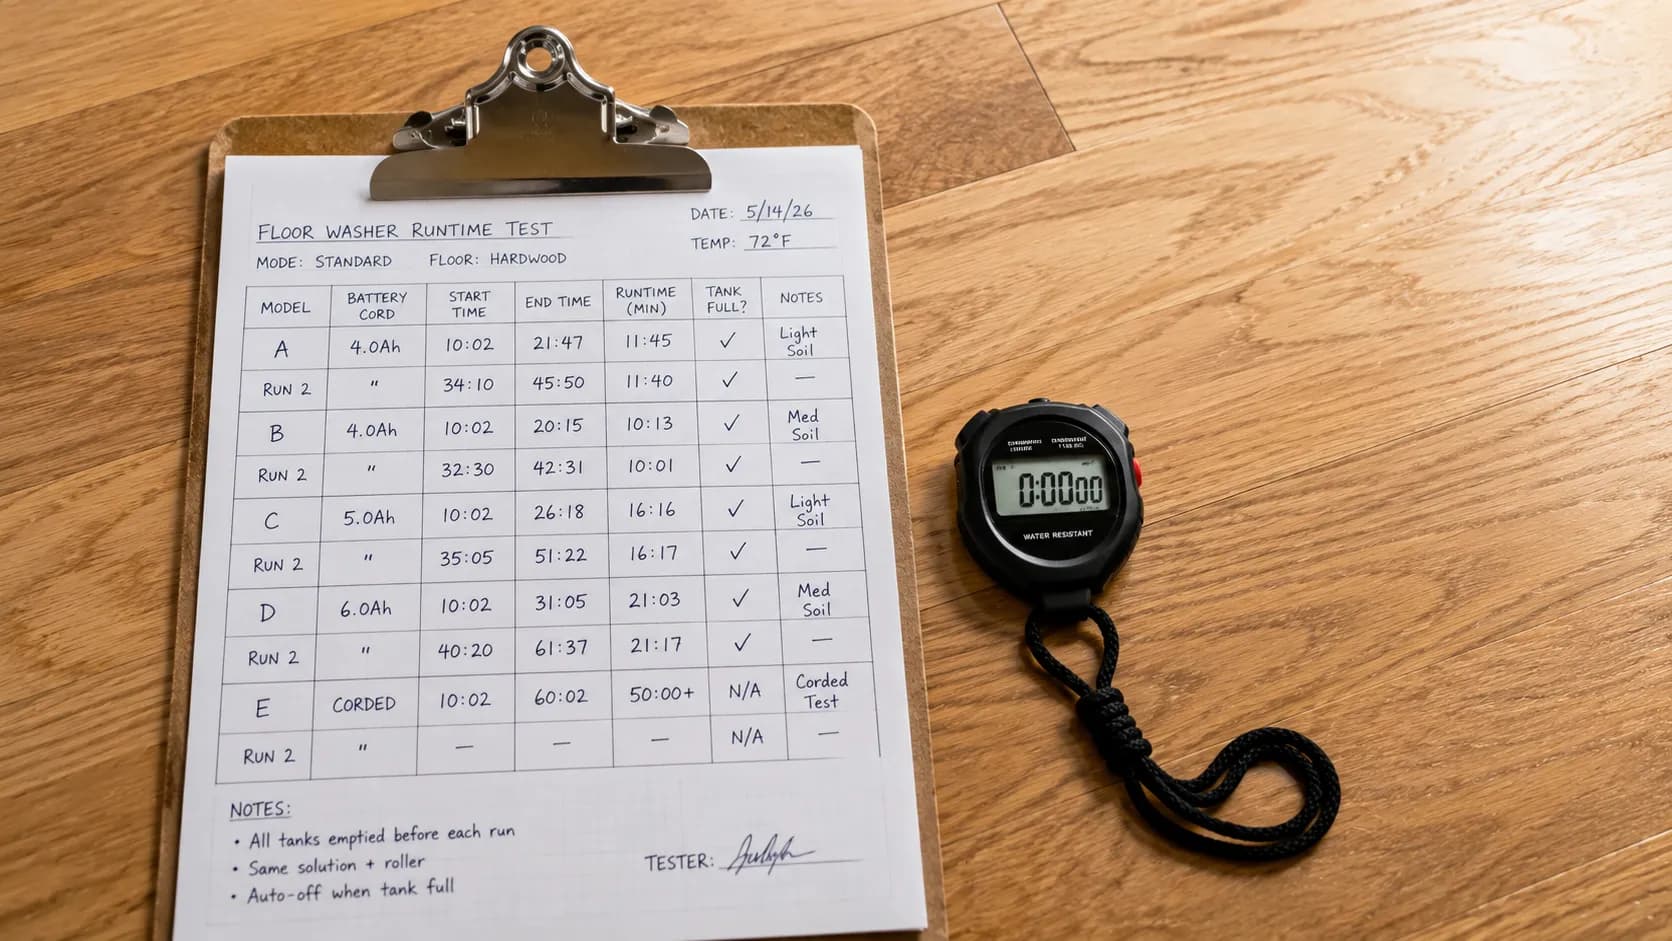 FLOOR WASHER RUNTIME TEST
DATE: 5/14/26
TEMP: 72°F
MODE: STANDARD FLOOR: HARDWOOD
MODEL BATTERY CORD START TIME END TIME RUNTIME (MIN) TANK FULL? NOTES
A 4.0Ah 10:02 21:47 11:45 ✓ Light Soil
RUN 2 " 34:10 45:50 11:40 ✓ —
B 4.0Ah 10:02 20:15 10:13 ✓ Med Soil
RUN 2 " 32:30 42:31 10:01 ✓ —
C 5.0Ah 10:02 26:18 16:16 ✓ Light Soil
RUN 2 " 35:05 51:22 16:17 ✓ —
D 6.0Ah 10:02 31:05 21:03 ✓ Med Soil
RUN 2 " 40:20 61:37 21:17 ✓ —
E CORDED 10:02 60:02 50:00+ N/A Corded Test
RUN 2 " — — — N/A —
NOTES:
• All tanks emptied before each run
• Same solution + roller
• Auto-off when tank full
TESTER:
0:0000
WATER RESISTANT